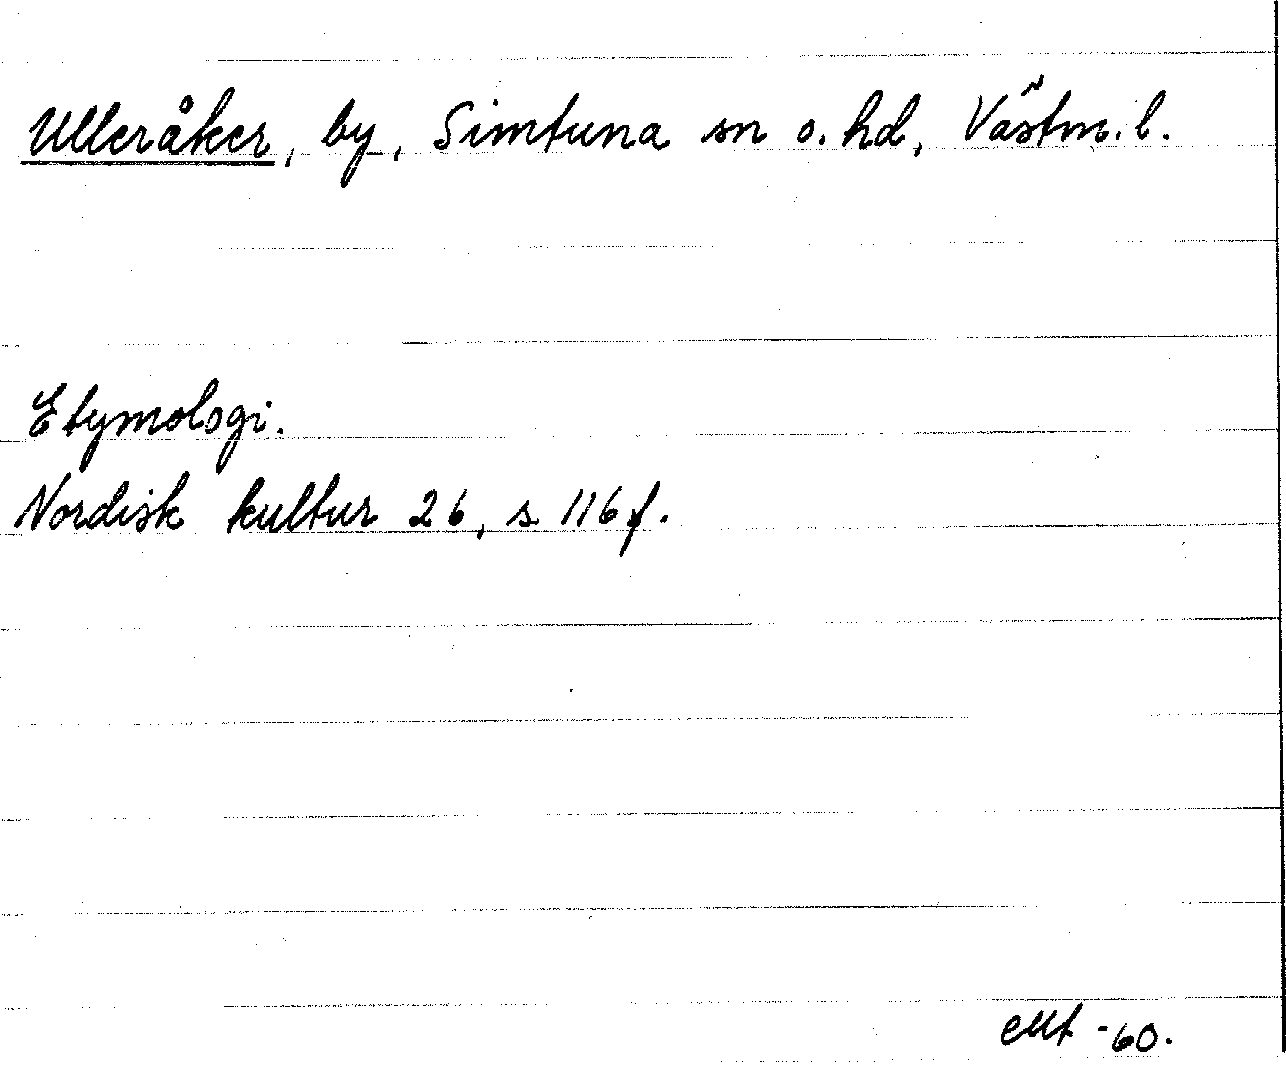 Ulleråker, by, Simtuna sn o. hd, Västm. l.
Etymologi.
Nordisk kultur 26, s 116 f.
-60.